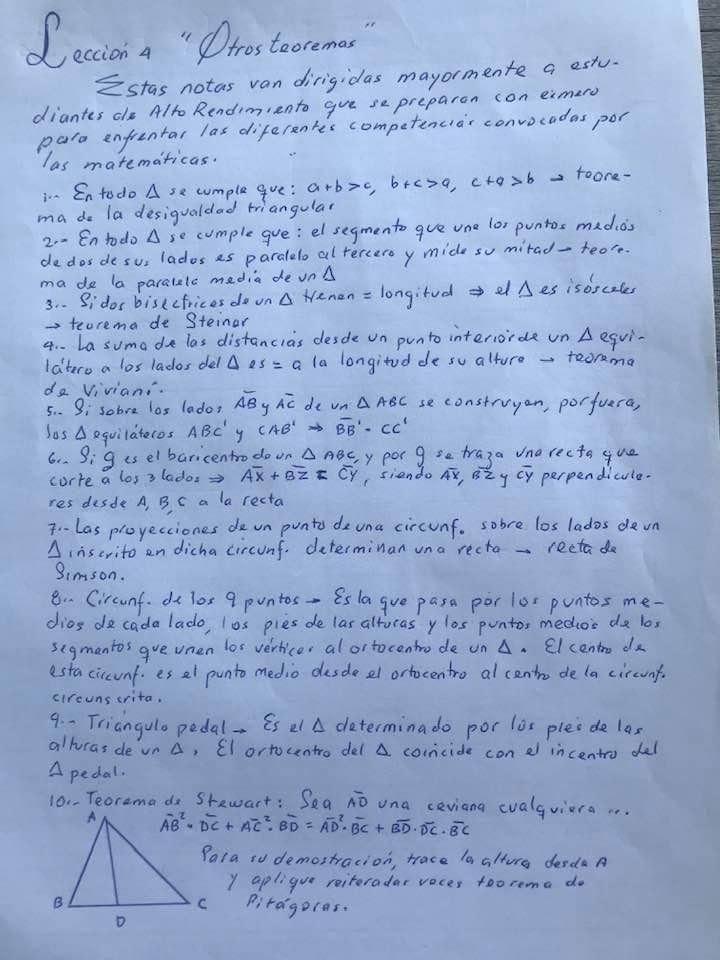 Lección 4 "Otros teoremas"
Estas notas van dirigidas mayormente a estu-
diantes de Alto Rendimiento que se preparan con esmero
para enfrentar las diferentes competencias convocadas por
las matemáticas.
1.- En todo Δ se cumple que: a+b>c, b+c>a, c+a>b → teore-
ma de la desigualdad triangular
2.- En todo Δ se cumple que: el segmento que une los puntos medios
de dos de sus lados es paralelo al tercero y mide su mitad → teore-
ma de la paralela media de un Δ
3.- Si dos bisectrices de un Δ tienen = longitud ⇒ el Δ es isósceles
→ teorema de Steiner
4.- La suma de las distancias desde un punto interior de un Δ equi-
látero a los lados del Δ es = a la longitud de su altura → teorema
de Viviani.
5.- Si sobre los lados A̅B̅ y A̅C̅ de un Δ ABC se construyen, por fuera,
los Δ equiláteros ABC' y CAB' ⇒ B̅B̅' = CC'
6.- Si g es el baricentro de un Δ ABC, y por g se traza una recta que
corte a los 3 lados ⇒ A̅X̅ + B̅Z̅ = C̅Y̅, siendo A̅X̅, B̅Z̅ y C̅Y̅ perpendicula-
res desde A, B, C a la recta
7.- Las proyecciones de un punto de una circunf. sobre los lados de un
Δ inscrito en dicha circunf. determinan una recta → recta de
Simson.
8.- Circunf. de los 9 puntos → Es la que pasa por los puntos me-
dios de cada lado, los pies de las alturas y los puntos medios de los
segmentos que unen los vértices al ortocentro de un Δ. El centro de
esta circunf. es el punto medio desde el ortocentro al centro de la circunf.
circunscrita.
9.- Triángulo pedal → Es el Δ determinado por los pies de las
alturas de un Δ, El ortocentro del Δ coincide con el incentro del
Δ pedal.
10.- Teorema de Stewart: Sea A̅D̅ una ceviana cualquiera ...
A̅B̅²·D̅C̅ + A̅C̅²·B̅D̅ = A̅D̅²·B̅C̅ + B̅D̅·D̅C̅·B̅C̅
A
Para su demostración, trace la altura desde A
y aplique reiteradas veces teorema de
Pitágoras.
B C
D